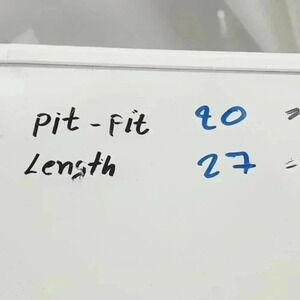 Pit - Pit 20 =
Length 27 =